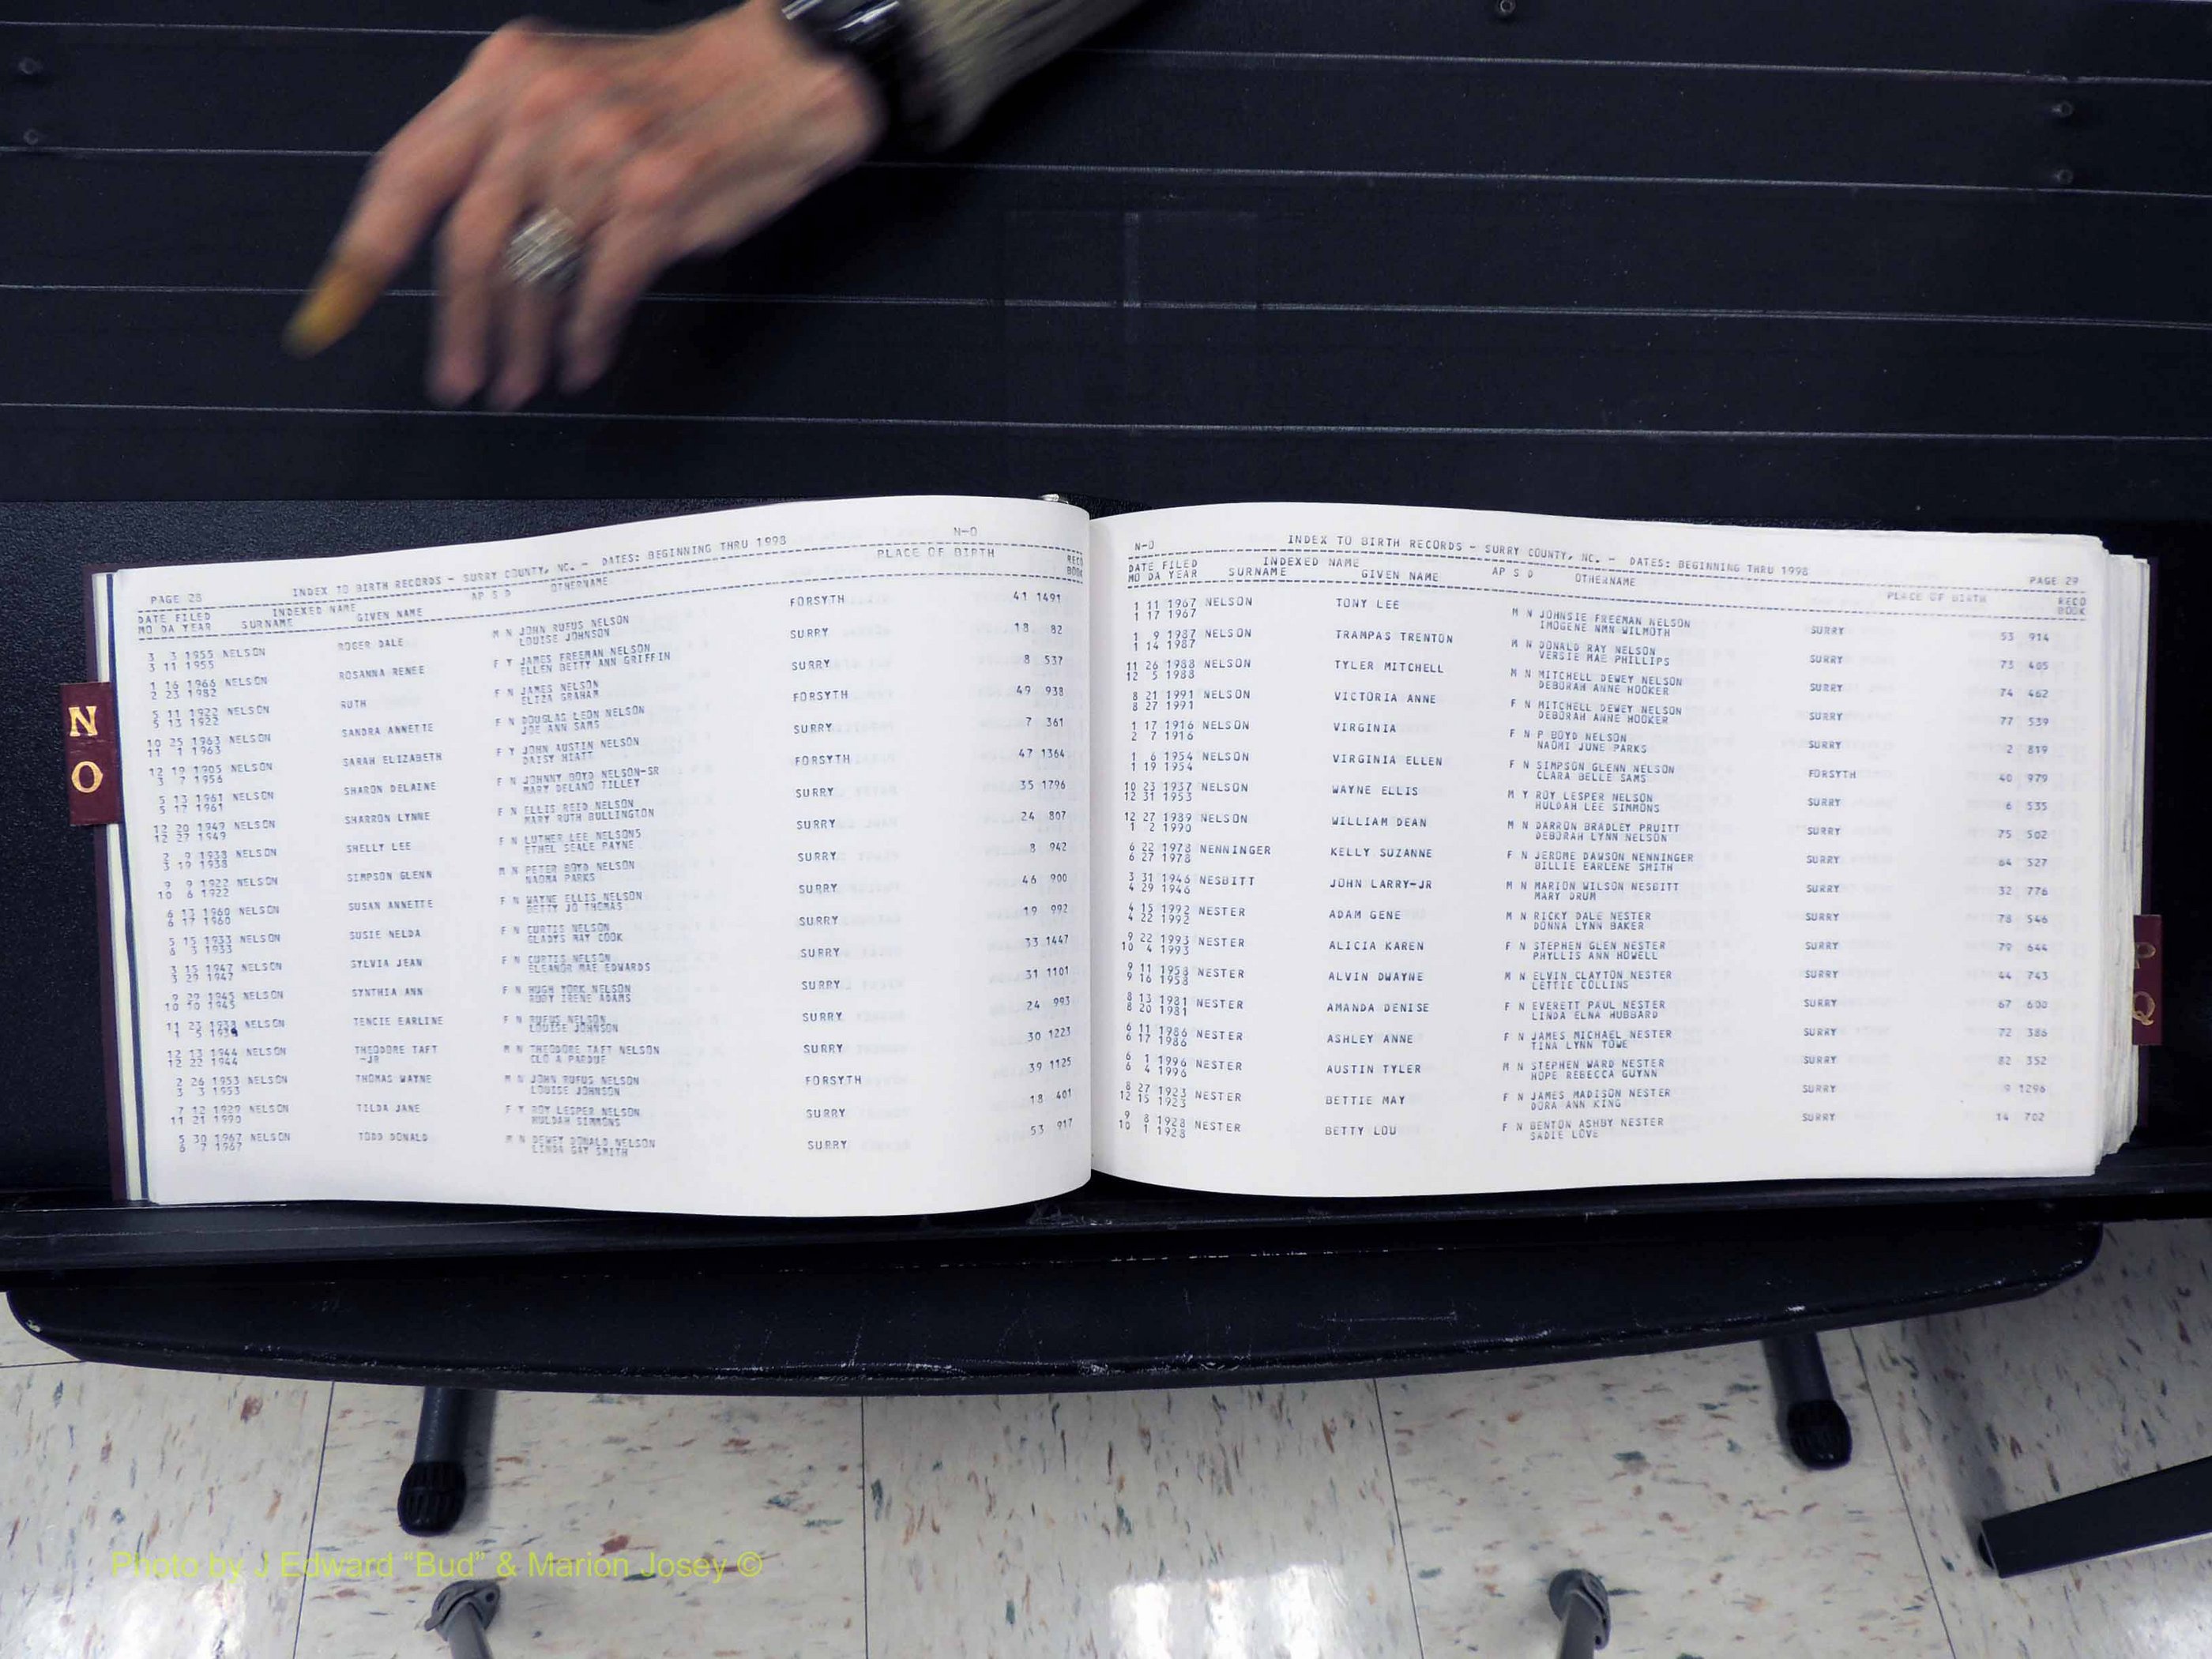 N
O
PAGE 28 INDEX TO BIRTH RECORDS - SURRY COUNTY, NC. - DATES: BEGINNING THRU 1998 N-O
DATE FILED INDEXED NAME AP S D OTHERNAME PLACE OF BIRTH RECO
MO DA YEAR SURNAME GIVEN NAME BOOK
3 3 1955 NELSON ROGER DALE M N JOHN RUFUS NELSON FORSYTH 41 1491
3 11 1955 LOUISE JOHNSON
1 16 1966 NELSON ROSANNA RENEE F Y JAMES FREEMAN NELSON SURRY 18 82
2 23 1982 ELLEN BETTY ANN GRIFFIN
5 11 1922 NELSON RUTH F N JAMES NELSON SURRY 8 537
5 13 1922 ELIZA GRAHAM
10 25 1963 NELSON SANDRA ANNETTE F N DOUGLAS LEON NELSON FORSYTH 49 938
11 1 1963 JOE ANN SAMS
12 19 1905 NELSON SARAH ELIZABETH F Y JOHN AUSTIN NELSON SURRY 7 361
3 7 1956 DAISY HIATT
5 13 1961 NELSON SHARON DELAINE F N JOHNNY BOYD NELSON-SR FORSYTH 47 1364
5 17 1961 MARY DELANO TILLEY
12 20 1949 NELSON SHARRON LYNNE F N ELLIS REID NELSON SURRY 35 1796
12 27 1949 MARY RUTH BULLINGTON
2 9 1938 NELSON SHELLY LEE F N LUTHER LEE NELSONS SURRY 24 807
3 19 1938 ETHEL SEALE PAYNE
9 9 1922 NELSON SIMPSON GLENN M N PETER BOYD NELSON SURRY 8 942
10 6 1922 NAOMA PARKS
6 13 1960 NELSON SUSAN ANNETTE F N WAYNE ELLIS NELSON SURRY 46 900
6 17 1960 BETTY JO THOMAS
5 15 1933 NELSON SUSIE NELDA F N CURTIS NELSON SURRY 19 992
6 3 1933 GLADYS MAY COOK
3 15 1947 NELSON SYLVIA JEAN F N CURTIS NELSON SURRY 33 1447
3 29 1947 ELEANOR MAE EDWARDS
9 29 1945 NELSON SYNTHIA ANN F N HUGH YORK NELSON SURRY 31 1101
10 10 1945 RUBY IRENE ADAMS
11 23 1938 NELSON TENCIE EARLINE F N RUFUS NELSON SURRY 24 993
1 5 1939 LOUISE JOHNSON
12 13 1944 NELSON THEODORE TAFT M N THEODORE TAFT NELSON SURRY 30 1223
12 22 1944 -JR CLO A PARDUE
2 26 1953 NELSON THOMAS WAYNE M N JOHN RUFUS NELSON FORSYTH 39 1125
3 3 1953 LOUISE JOHNSON
7 12 1929 NELSON TILDA JANE F Y ROY LESPER NELSON SURRY 18 401
11 21 1990 HULDAH SIMMONS
5 30 1967 NELSON TODD DONALD M N DEWEY DONALD NELSON SURRY 53 917
6 7 1967 LINDA GAY SMITH
N-O INDEX TO BIRTH RECORDS - SURRY COUNTY, NC. - DATES: BEGINNING THRU 1998 PAGE 29
DATE FILED INDEXED NAME AP S D OTHERNAME PLACE OF BIRTH RECO
MO DA YEAR SURNAME GIVEN NAME BOOK
1 11 1967 NELSON TONY LEE M N JOHNSIE FREEMAN NELSON SURRY 53 914
1 17 1967 IMOGENE NMN WILMOTH
1 9 1987 NELSON TRAMPAS TRENTON M N DONALD RAY NELSON SURRY 73 405
1 14 1987 VERSIE MAE PHILLIPS
11 26 1988 NELSON TYLER MITCHELL M N MITCHELL DEWEY NELSON SURRY 74 462
12 5 1988 DEBORAH ANNE HOOKER
8 21 1991 NELSON VICTORIA ANNE F N MITCHELL DEWEY NELSON SURRY 77 539
8 27 1991 DEBORAH ANNE HOOKER
1 17 1916 NELSON VIRGINIA F N P BOYD NELSON SURRY 2 819
2 7 1916 NAOMI JUNE PARKS
1 6 1954 NELSON VIRGINIA ELLEN F N SIMPSON GLENN NELSON FORSYTH 40 979
1 19 1954 CLARA BELLE SAMS
10 23 1937 NELSON WAYNE ELLIS M Y ROY LESPER NELSON SURRY 6 535
12 31 1953 HULDAH LEE SIMMONS
12 27 1989 NELSON WILLIAM DEAN M N DARRON BRADLEY PRUITT SURRY 75 502
1 2 1990 DEBORAH LYNN NELSON
6 22 1978 NENNINGER KELLY SUZANNE F N JEROME DAWSON NENNINGER SURRY 64 527
6 27 1978 BILLIE EARLENE SMITH
3 31 1946 NESBITT JOHN LARRY-JR M N MARION WILSON NESBITT SURRY 32 776
4 29 1946 MARY DRUM
4 15 1992 NESTER ADAM GENE M N RICKY DALE NESTER SURRY 78 546
4 22 1992 DONNA LYNN BAKER
9 22 1993 NESTER ALICIA KAREN F N STEPHEN GLEN NESTER SURRY 79 644
10 4 1993 PHYLLIS ANN HOWELL
9 11 1958 NESTER ALVIN DWAYNE M N ELVIN CLAYTON NESTER SURRY 44 743
9 16 1958 LETTIE COLLINS
8 13 1981 NESTER AMANDA DENISE F N EVERETT PAUL NESTER SURRY 67 600
8 20 1981 LINDA ELNA HUBBARD
6 11 1986 NESTER ASHLEY ANNE F N JAMES MICHAEL NESTER SURRY 72 386
6 17 1986 TINA LYNN TOWE
6 1 1996 NESTER AUSTIN TYLER M N STEPHEN WARD NESTER SURRY 82 352
6 4 1996 HOPE REBECCA GUYNN
8 27 1923 NESTER BETTIE MAY F N JAMES MADISON NESTER SURRY 9 1296
12 15 1923 DORA ANN KING
9 8 1928 NESTER BETTY LOU F N BENTON ASHBY NESTER SURRY 14 702
10 1 1928 SADIE LOVE
Q
Photo by J Edward “Bud” & Marion Josey ©